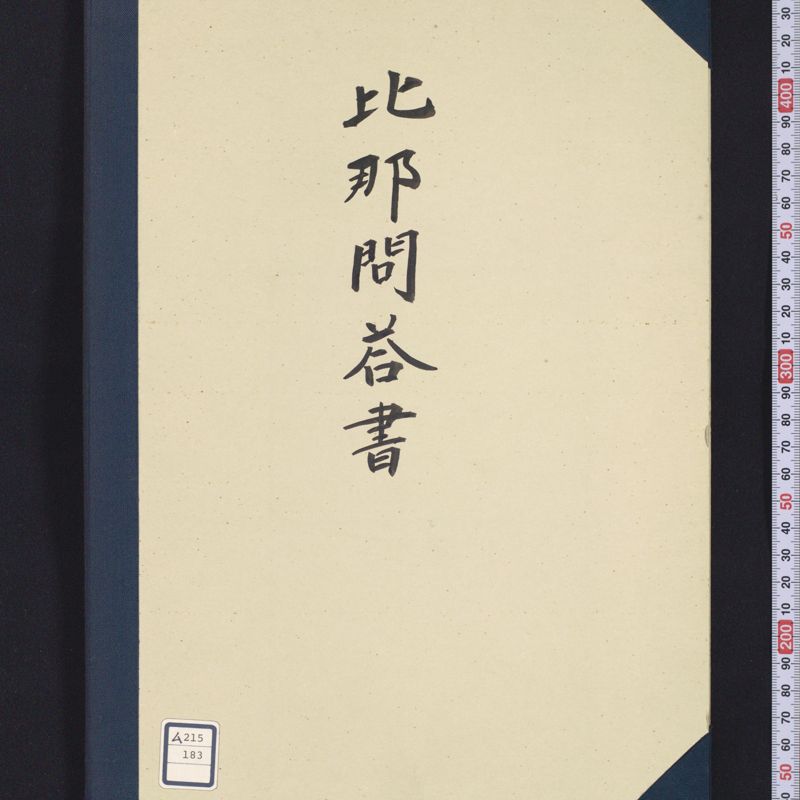 比那問荅書
A215
183
30
20
10
400
90
80
70
60
50
40
30
20
10
300
90
80
70
60
50
40
30
20
10
200
90
80
70
60
50
40